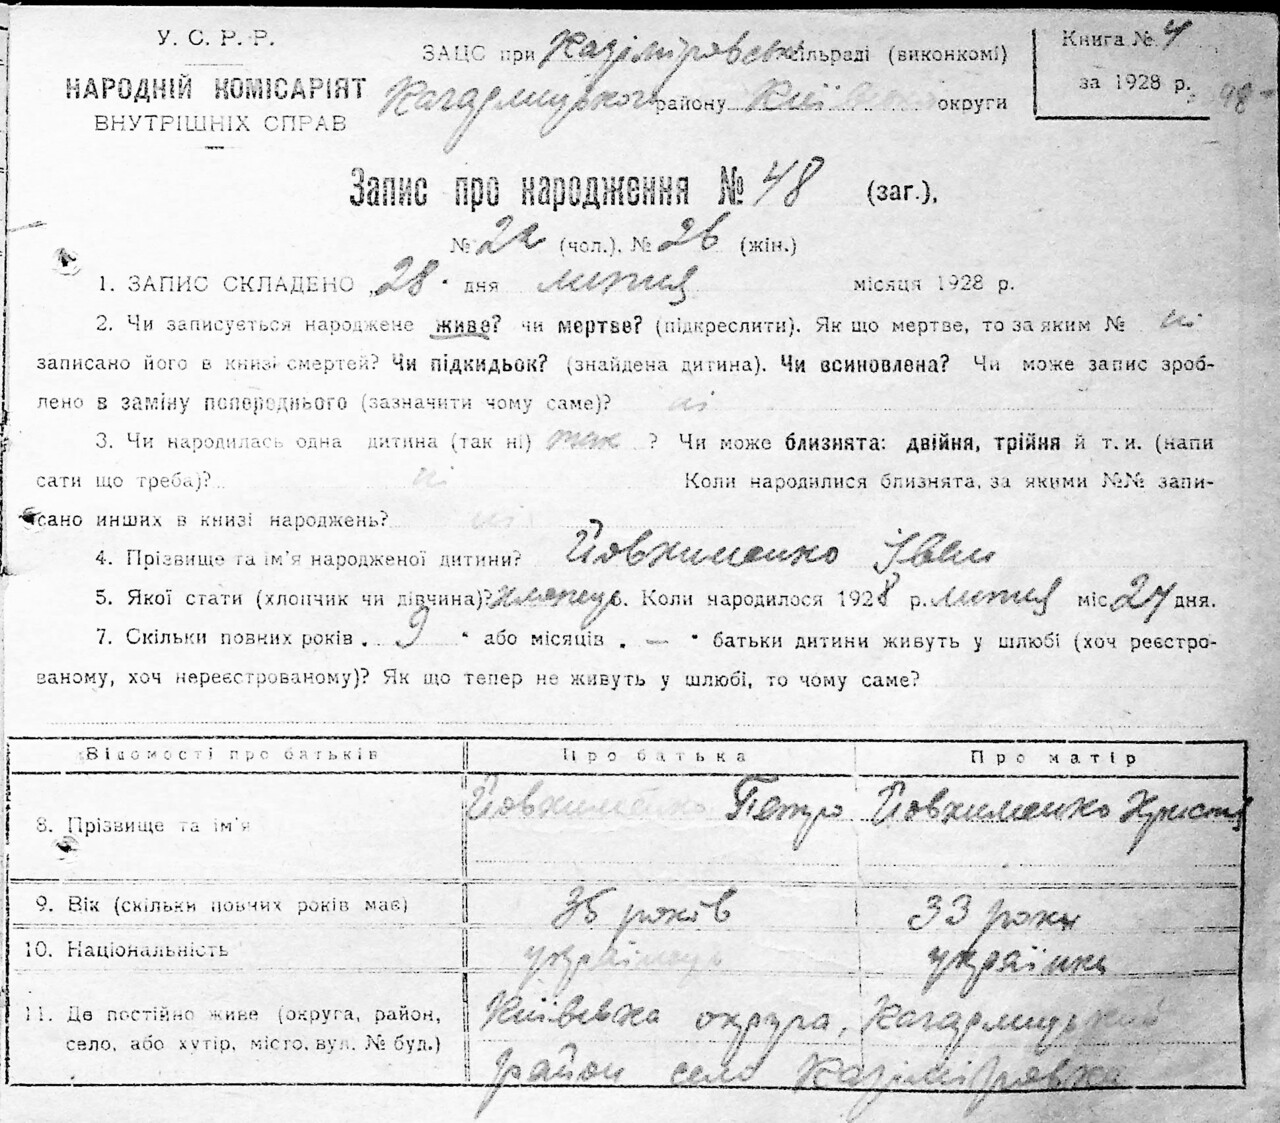 У. С. Р. Р.
НАРОДНІЙ КОМІСАРІЯТ
ВНУТРІШНІХ СПРАВ
ЗАЦС при Казіміровській сільраді (виконкомі)
Кагарлицького району Київської округи
Книга № 4
за 1928 р.
48
Запис про народження № 48 (заг.),
№ 22 (чол.). № 26 (жін.)
1. ЗАПИС СКЛАДЕНО „28“ дня липня місяця 1928 р.
2. Чи записується народжене живе? чи мертве? (підкреслити). Як що мертве, то за яким № ні
записано його в книзі смертей? Чи підкидьок? (знайдена дитина). Чи всиновлена? Чи може запис зроб-
лено в заміну попереднього (зазначити чому саме)? ні
3. Чи народилась одна дитина (так ні) так ? Чи може близнята: двійня, трійня й т. и. (напи
сати що треба)? ні Коли народилися близнята, за якими №№ запи-
сано инших в книзі народжень? ні
4. Прізвище та ім'я народженої дитини? Йовхименко Іван
5. Якої стати (хлопчик чи дівчина)? хлопець. Коли народилося 1928 р. липня міс. 24 дня.
7. Скільки повних років „ 9 “ або місяців „ — “ батьки дитини живуть у шлюбі (хоч реєстро-
ваному, хоч нереєстрованому)? Як що тепер не живуть у шлюбі, то чому саме?
Відомості про батьків Про батька Про матір
8. Прізвище та ім'я Йовхименко Петро Йовхименко Христя
9. Вік (скільки повних років має) 35 років 33 роки
10. Національність українець українка
11. Де постійно живе (округа, район, Київська округа, Кагарлицький
село, або хутір, місто, вул. № буд.) район село Казіміровка